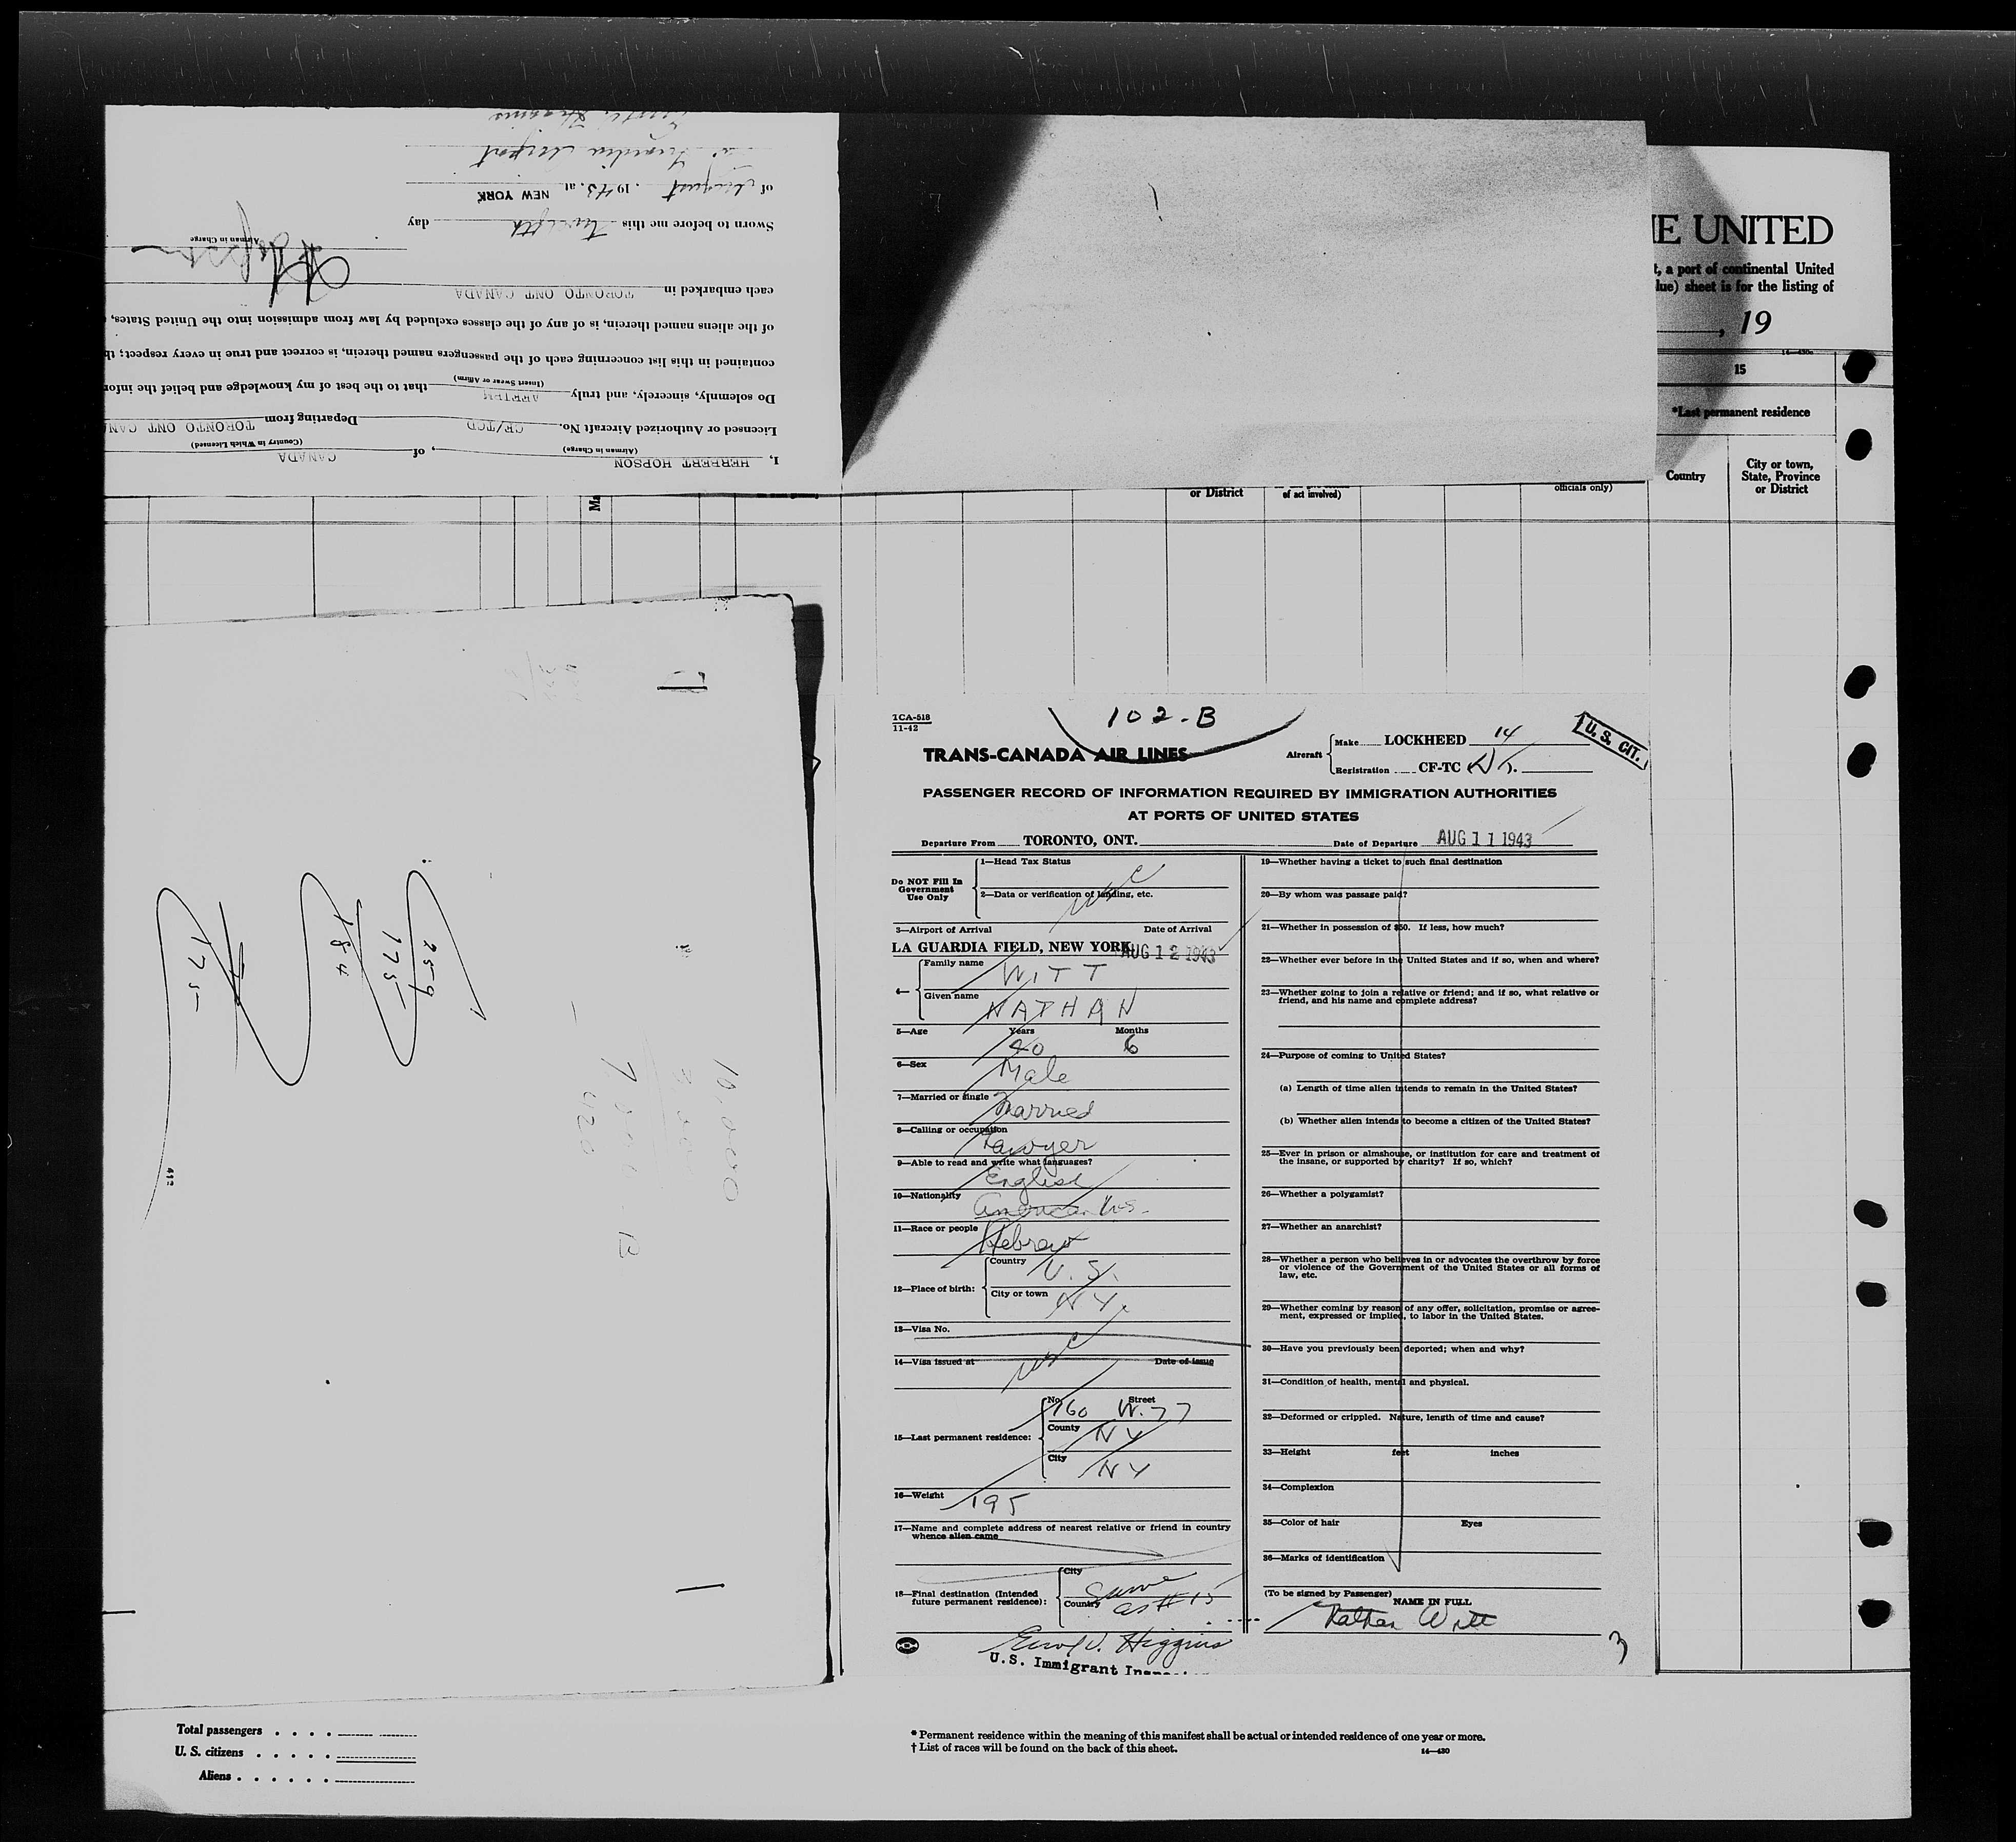 I, HERBERT HOPSON, of CANADA
(Airman in Charge) (Country in Which Licensed)
Licensed or Authorized Aircraft No. CF/TCD Departing from TORONTO ONT CANA
Do solemnly, sincerely, and truly AFFIRM that to the best of my knowledge and belief the infor
(Insert Swear or Affirm)
contained in this list concerning each of the passengers named therein, is correct and true in every respect; th
of the aliens named therein, is of any of the classes excluded by law from admission into the United States,
each embarked in TORONTO ONT CANADA
H Hopson
Airman in Charge
Sworn to before me this twelfth day
of August, 1943. at NEW YORK
La Guardia Airport
IE UNITED
t, a port of continental United
lue) sheet is for the listing of
, 19
14—430c
15
*Last permanent residence
Country
City or town,
State, Province
or District
Ma
or District
of act involved)
officials only)
259
175
184
175
412
10,000
TCA-518
11-42
102-B
TRANS-CANADA AIR LINES
Aircraft
Make LOCKHEED 14
Registration CF-TC
U. S. CIT.
PASSENGER RECORD OF INFORMATION REQUIRED BY IMMIGRATION AUTHORITIES
AT PORTS OF UNITED STATES
Departure From TORONTO, ONT. Date of Departure AUG 11 1943
Do NOT Fill In
Government
Use Only
1—Head Tax Status
2—Data or verification of landing, etc.
USC
3—Airport of Arrival Date of Arrival
LA GUARDIA FIELD, NEW YORK AUG 12 1943
4—
Family name WITT
Given name NATHAN
5—Age Years Months
40 6
6—Sex Male
7—Married or single Married
8—Calling or occupation
Lawyer
9—Able to read and write what languages?
English
10—Nationality
American U.S.
11—Race or people Hebrew
12—Place of birth:
Country U. S.
City or town NY.
13—Visa No.
USC
14—Visa issued at Date of issue
15—Last permanent residence:
No. Street
160 W. 77
County NY
City NY
16—Weight 195
17—Name and complete address of nearest relative or friend in country
whence alien came
18—Final destination (Intended
future permanent residence):
City Same
Country as # 15
Higgins
U.S. Immigrant
19—Whether having a ticket to such final destination
20—By whom was passage paid?
21—Whether in possession of $50. If less, how much?
22—Whether ever before in the United States and if so, when and where?
23—Whether going to join a relative or friend; and if so, what relative or
friend, and his name and complete address?
24—Purpose of coming to United States?
(a) Length of time alien intends to remain in the United States?
(b) Whether alien intends to become a citizen of the United States?
25—Ever in prison or almshouse, or institution for care and treatment of
the insane, or supported by charity? If so, which?
26—Whether a polygamist?
27—Whether an anarchist?
28—Whether a person who believes in or advocates the overthrow by force
or violence of the Government of the United States or all forms of
law, etc.
29—Whether coming by reason of any offer, solicitation, promise or agree-
ment, expressed or implied, to labor in the United States.
30—Have you previously been deported; when and why?
31—Condition of health, mental and physical.
32—Deformed or crippled. Nature, length of time and cause?
33—Height feet inches
34—Complexion
35—Color of hair Eyes
36—Marks of identification
(To be signed by Passenger)
NAME IN FULL
Nathan Witt
3
Total passengers
U. S. citizens
Aliens
* Permanent residence within the meaning of this manifest shall be actual or intended residence of one year or more.
† List of races will be found on the back of this sheet.
14—430